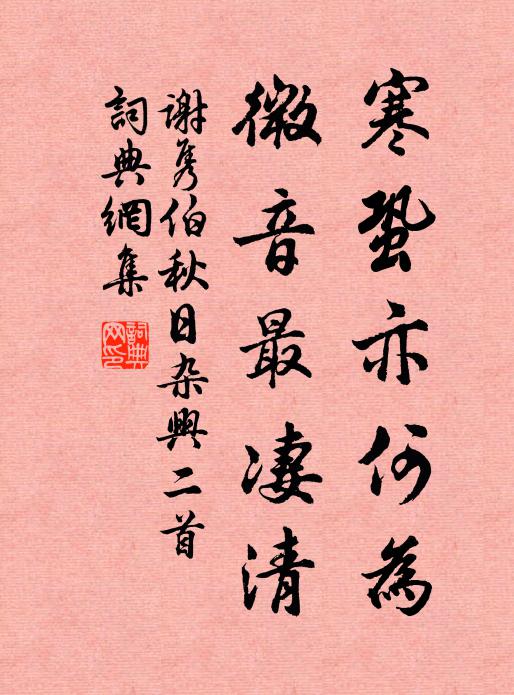 寒蛩亦何為
微音最凄清
谢隽伯秋日杂興二首
詞典網集
詞典网印